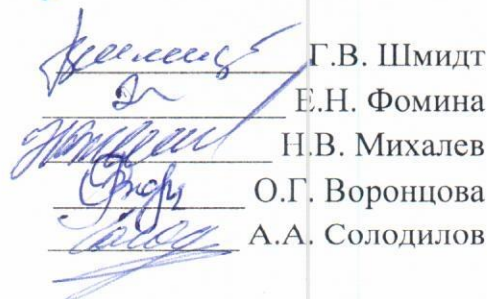 Г.В. Шмидт
Е.Н. Фомина
Н.В. Михалев
О.Г. Воронцова
А.А. Солодилов